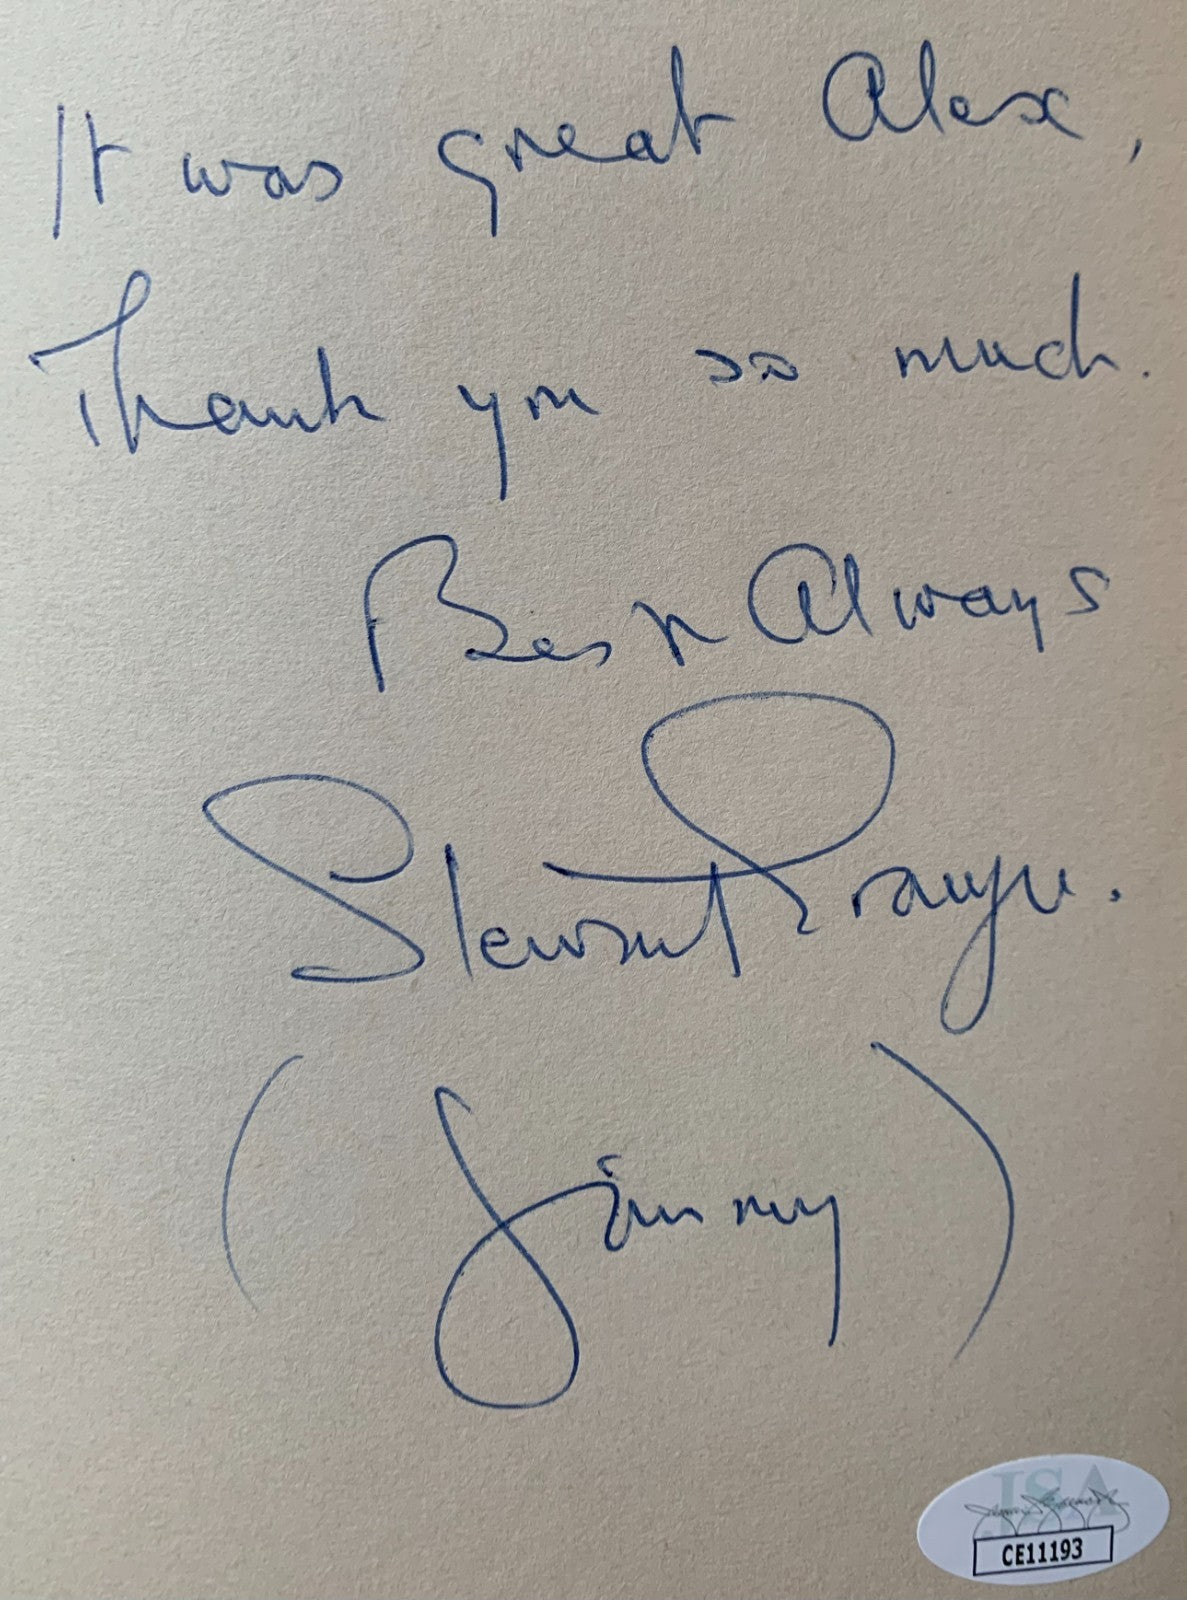 It was great Alex,
Thank you so much.
Best Always
Stewart Granger.
(Jimmy)
JSA
CE11193